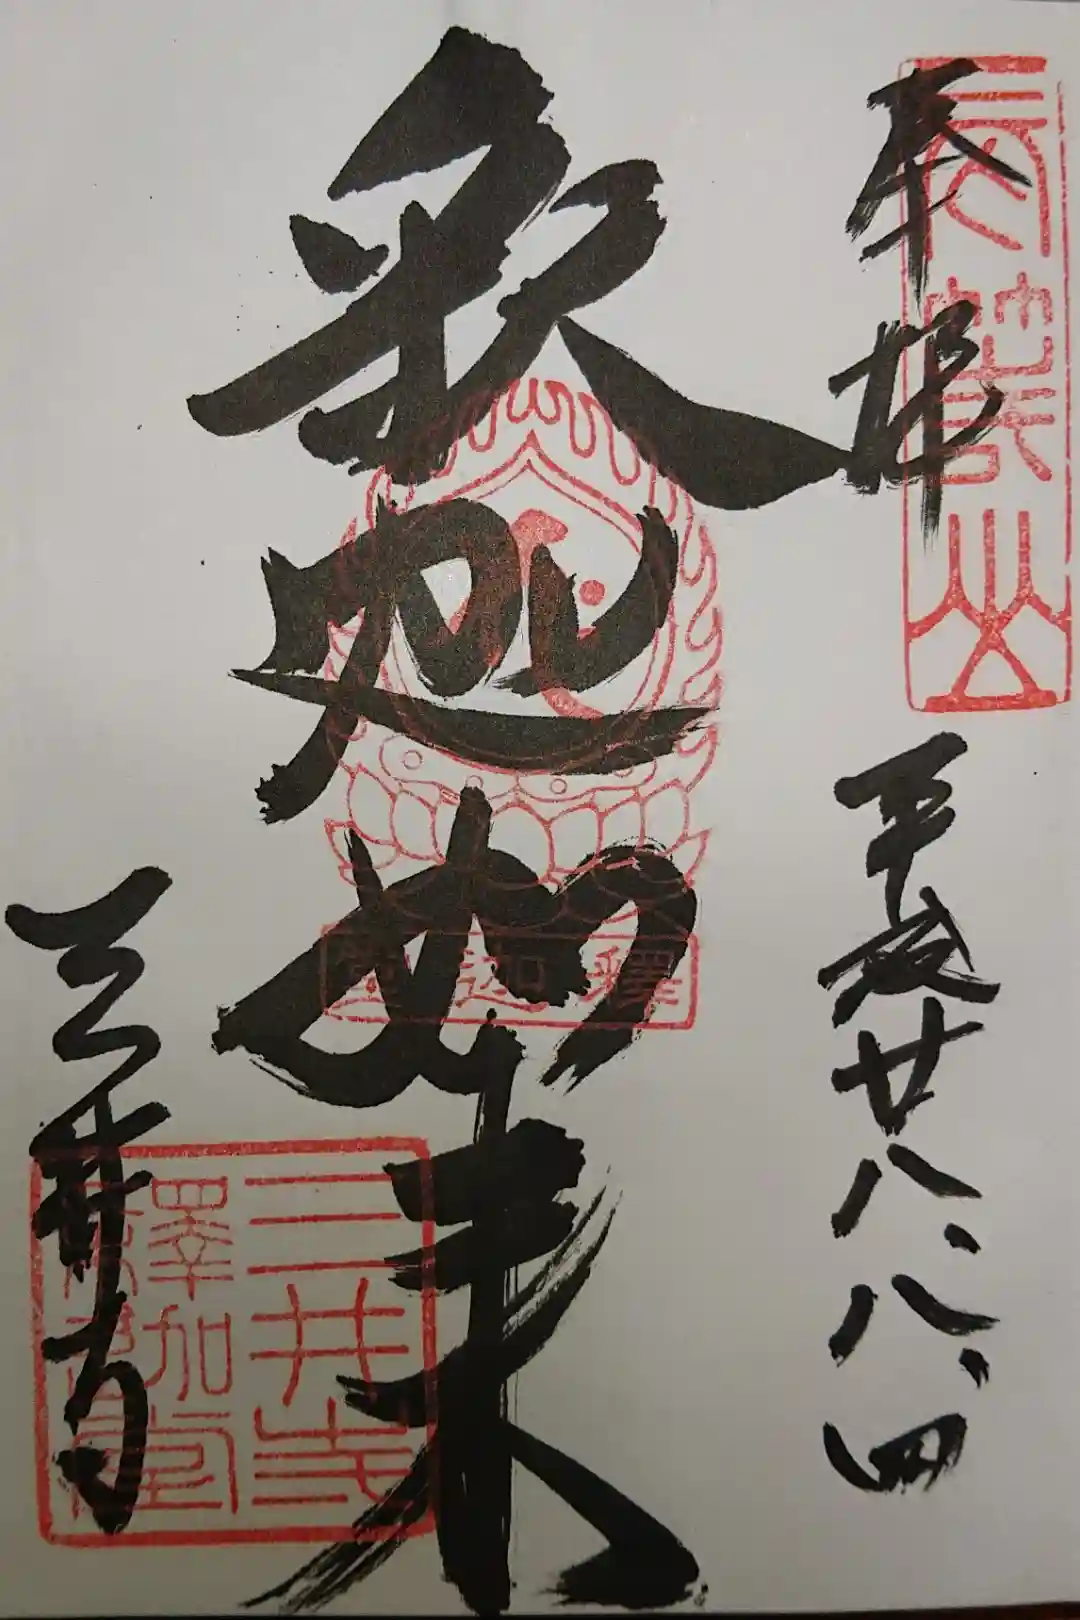 奉拝
平成廿八、八、四
長等山
釈迦如来
釋迦
三井寺
三井寺
釋迦堂